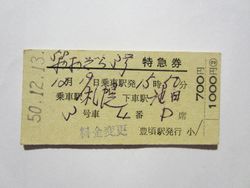 50.12.13
おおぞら3号 特急券
月19日乗車駅発15時50分
乗車駅 札幌 下車駅 池田
3号車 4番 D席
料金変更 豊頃駅発行
700円
1000円